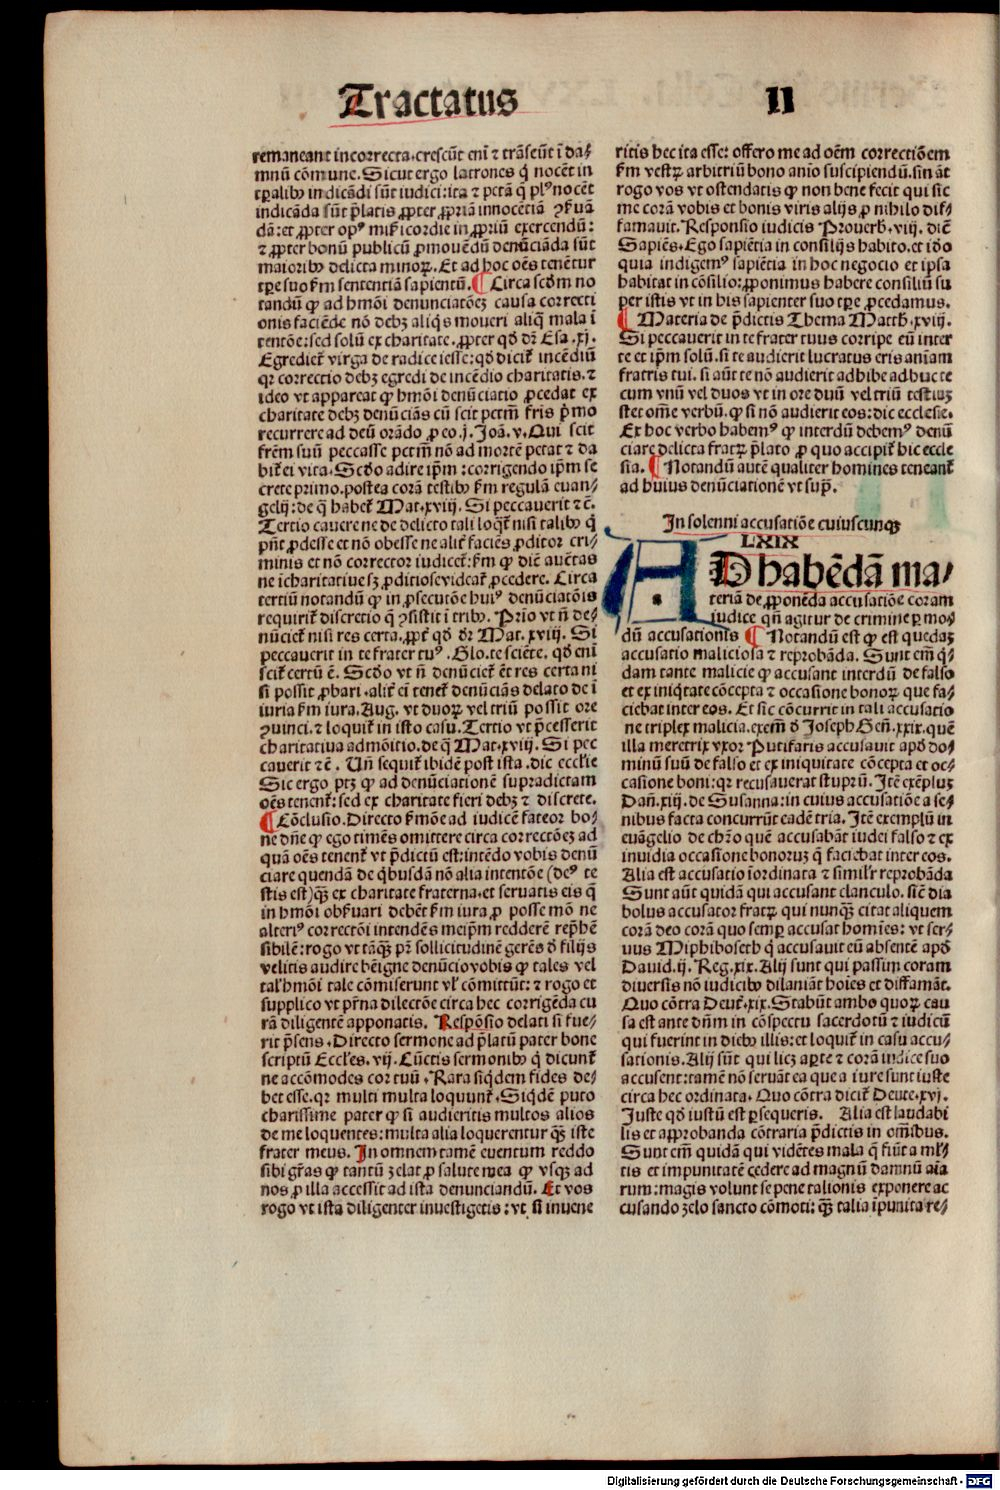 Tractatus II
remaneant incorrecta.crescūt enī ⁊ trāseūt ī da⸗
mnū cōmune. Sicut ergo latrones q̄ nocēt in
tꝑalibꝰ indicādi sūt iudici:ita ⁊ pctā q̄ plꝰ nocēt
indicāda sūt p̄latis ꝓpter ꝓpriā innocētiā ꝯẜuā
dā: et ꝓpter opꝰ miẜicordie in ꝓpriū exercendū:
⁊ ꝓpter bonū publicū ꝓmouēdū denūciāda sūt
maioribꝰ delicta minoꝝ. Et ad hoc oēs tenētur
tꝑe suo ẜm sententiā sapientū. ¶ Circa scd̄m no
tandū ꝙ ad hm̄ōi denunciatōeꝫ causa correcti
onis faciēde nō debꝫ aliq̄s moueri aliq̄ mala ī
tentōe: sed solū ex charitate. ꝓpter qd̄ dr̄ Esa. xj.
Egrediet᷑ virga de radice iesse: qd̄ dicit᷑ incēdiū
qꝛ correctio debꝫ egredi de incēdio charitatis. ⁊
ideo vt appareat ꝙ hm̄ōi denūciatio ꝓcedat ex
charitate debꝫ denūciās cū scit pctm̄ fr̄is p̄mo
recurrere ad deū orādo ꝓ eo. j. Joā. v. Qui scit
fr̄em suū peccasse pctm̄ nō ad mortē petat ⁊ da
bit᷑ ei vita. Scd̄o adire ip̄m: corrigendo ip̄m se
crete primo. postea corā testibꝰ ẜm regulā euan⸗
gelij: de q̄ habet᷑ Mat. xviij. Si peccauerit ⁊c̄.
Tertio cauere ne de delicto tali loqͣt᷑ nisi talibꝰ q̄
pn̄t ꝓdesse et nō obesse ne alit᷑ faciēs ꝓditor cri⸗
minis et nō corrector iudicet᷑: ẜm ꝙ diē auētas
ne īcharitatiue sꝫ ꝓditiose videat᷑ ꝓcedere. Circa
tertiū notandū ꝙ in ꝓsecutōe huiꝰ denūciatōis
requirit᷑ discretio q̄ ꝯsistit ī tribꝰ. Prīo vt n̄ de⸗
nūciet᷑ nisi res certa. ꝓpt᷑ qd̄ dr̄ Mat. xviij. Si
peccauerit in te frater tuꝰ. Glo. te sciēte. qd̄ enī
scit᷑ certū ē. Scd̄o vt n̄ denūciet᷑ ēt res certa ni
si possit ꝓbari. alit᷑ eī tenet᷑ denūciās delato de ī
iuria ẜm iura. Aug. vt duoꝝ vel triū possit ore
ꝯuinci. ⁊ loquit᷑ in isto casu. Tertio vt p̄cesserit
charitatiua admōitio. de q̄ Mat. xviij. Si pec
cauerit ⁊c̄. Un̄ sequit᷑ ibidē post ista. dic eccl̄ie
Sic ergo ptꝫ ꝙ ad denūciationē supradictam
oēs tenent᷑: sed ex charitate fieri debꝫ ⁊ discrete.
¶ Cōclusio. Directo ẜmōe ad iudicē fateor bo⸗
ne dn̄e ꝙ ego timēs omittere circa correctōeꝫ ad
quā oēs tenent᷑ vt p̄dictū est: intēdo vobis denū
ciare quendā de q̄busdā nō alia intentōe (deꝰ te
stis est) qꝫ̄ ex charitate fraterna. et seruatis eis q̄
in hm̄ōi obẜuari debēt ẜm iura ꝓ posse mō ne
alteriꝰ correctōi intendēs meip̄m redderē rep̄hē
sibilē: rogo vt tāqꝫ̄ pr̄ sollicitudinē gerēs d̄ filijs
velitis audire bēigne denūcio vobis ꝙ tales vel
tal̓ hm̄ōi tale cōmiserunt vl̓ cōmittūt: ⁊ rogo et
supplico vt pr̄na dilectōe circa hec corrigēda cu
rā diligentē apponatis. Respōsio delati si fue⸗
rit p̄sens. Directo sermone ad p̄latū pater bone
scriptū Eccl̓es. vij. Cūctis sermonibꝰ q̄ dicunt᷑
ne accōmodes cor tuū. Rara siq̄dem fides de⸗
bet esse. qꝛ multi multa loquunt᷑. Siq̄dē puto
charissime pater ꝙ si audieritis multos alios
de me loquentes: multa alia loquerentur qꝫ̄ iste
frater meus. In omnem tamē euentum reddo
sibi gr̄as ꝙ tantū zelat ꝓ salute mea ꝙ vsqꝫ ad
nos ꝓ illa accessit ad ista denunciandū. Et vos
rogo vt ista diligenter inuestigetis: vt si inuene
ritis hec ita esse: offero me ad oēm correctiōem
ẜm vestrꝝ arbitriū bono anīo suscipiendū. sin āt
rogo vos vt ostendatis ꝙ non bene fecit qui sic
me corā vobis et bonis viris alijs ꝓ nihilo dif⸗
famauit. Responsio iudicis Prouerb̓. viij. diē
Sapiēs. Ego sapiētia in consilijs habito. et iō
quia indigemꝰ sapiētia in hoc negocio et ipsa
habitat in cōsilio: ꝓponimus habere consiliū su
per istis vt in his sapienter suo tꝑe ꝓcedamus.
¶ Materia de p̄dictis Thema Matth̓. xviij.
Si peccauerit in te frater tuus corripe eū inter
te et ip̄m solū. si te audierit lucratus eris aniam
fratris tui. si aūt te nō audierit adhibe adhuc te
cum vnū vel duos vt in ore duū vel triū testiuꝫ
stet om̄e verbū. ꝙ si nō audierit eos: dic ecclesie.
Ex hoc verbo habemꝰ ꝙ interdū debemꝰ denū
ciare delicta fratꝝ p̄lato ꝓ quo accipit᷑ hic eccle
sia. ¶ Notandū autē qualiter homines teneant᷑
ad huius denūciationē vt supͣ.
In solenni accusatiōe cuiuscunqꝫ
LXIX
AD habēdā ma⸗
teriā de ꝓponēda accusatiōe coram
iudice qn̄ agitur de crimine ꝑ mo⸗
dū accusationis ¶ Notandū est ꝙ est quedaꝫ
accusatio maliciosa ⁊ reprobāda. Sunt em̄ q̄⸗
dam tante malicie ꝙ accusant interdū de falso
et ex iniq̄tate cōcepta ⁊ occasione honoꝝ que fa⸗
ciebat inter eos. Et sic cōcurrit in tali accusatio
ne triplex malicia. exēm d̄ Joseph Gen̄. xxix. quē
illa meretrix vxor Putifaris accusauit apd̄ do⸗
minū suū de falso et ex iniquitate cōcepta et oc⸗
casione boni: qꝛ recusauerat stuprū. Itē exēpluꝫ
Dan̄. xiij. de Susanna: in cuius accusatiōe a se⸗
nibus facta concurrūt eadē tria. Itē exemplū in
euāgelio de chr̄o quē accusabāt iudei falso ⁊ ex
inuidia occasione honoruꝫ q̄ faciebat inter eos.
Alia est accusatio īordinata ⁊ simil̓r reprobāda
Sunt aūt quidā qui accusant clanculo. sic̄ dia
bolus accusator fratꝝ qui nunqꝫ̄ citat aliquem
corā deo corā quo semꝑ accusat homīes: vt ser⸗
uus Miphiboseth q̄ accusauit eū absentē apd̄
Dauid. ij. Reg. xix. Alij sunt qui passim coram
diuersis nō iudicibꝰ dilaniāt hoīes et diffamāt.
Quo cōtra Deut᷑. xix. Stabūt ambo quoꝝ cau
sa est ante dn̄m in cōspectu sacerdotū ⁊ iudicū
qui fuerint in diebꝰ illis: et loquit᷑ in casu accu⸗
sationis. Alij sūt qui licꝫ aꝑte ⁊ corā iudice suo
accusent: tamē nō seruāt ea que a iure sunt iuste
circa hec ordinata. Quo cōtra dicit᷑ Deute. xvj.
Juste qd̄ iustū est ꝑsequeris. Alia est laudabi
lis et approbanda cōtraria p̄dictis in om̄ibus.
Sunt em̄ quidā qui vidētes mala q̄ fiūt a ml̓
tis et impunitatē cedere ad magnū damnū aīa
rum: magis volunt se pene talionis exponere ac
cusando zelo sancto cōmoti: qꝫ̄ talia īpunita re⸗
Digitalisierung gefördert durch die Deutsche Forschungsgemeinschaft - DFG